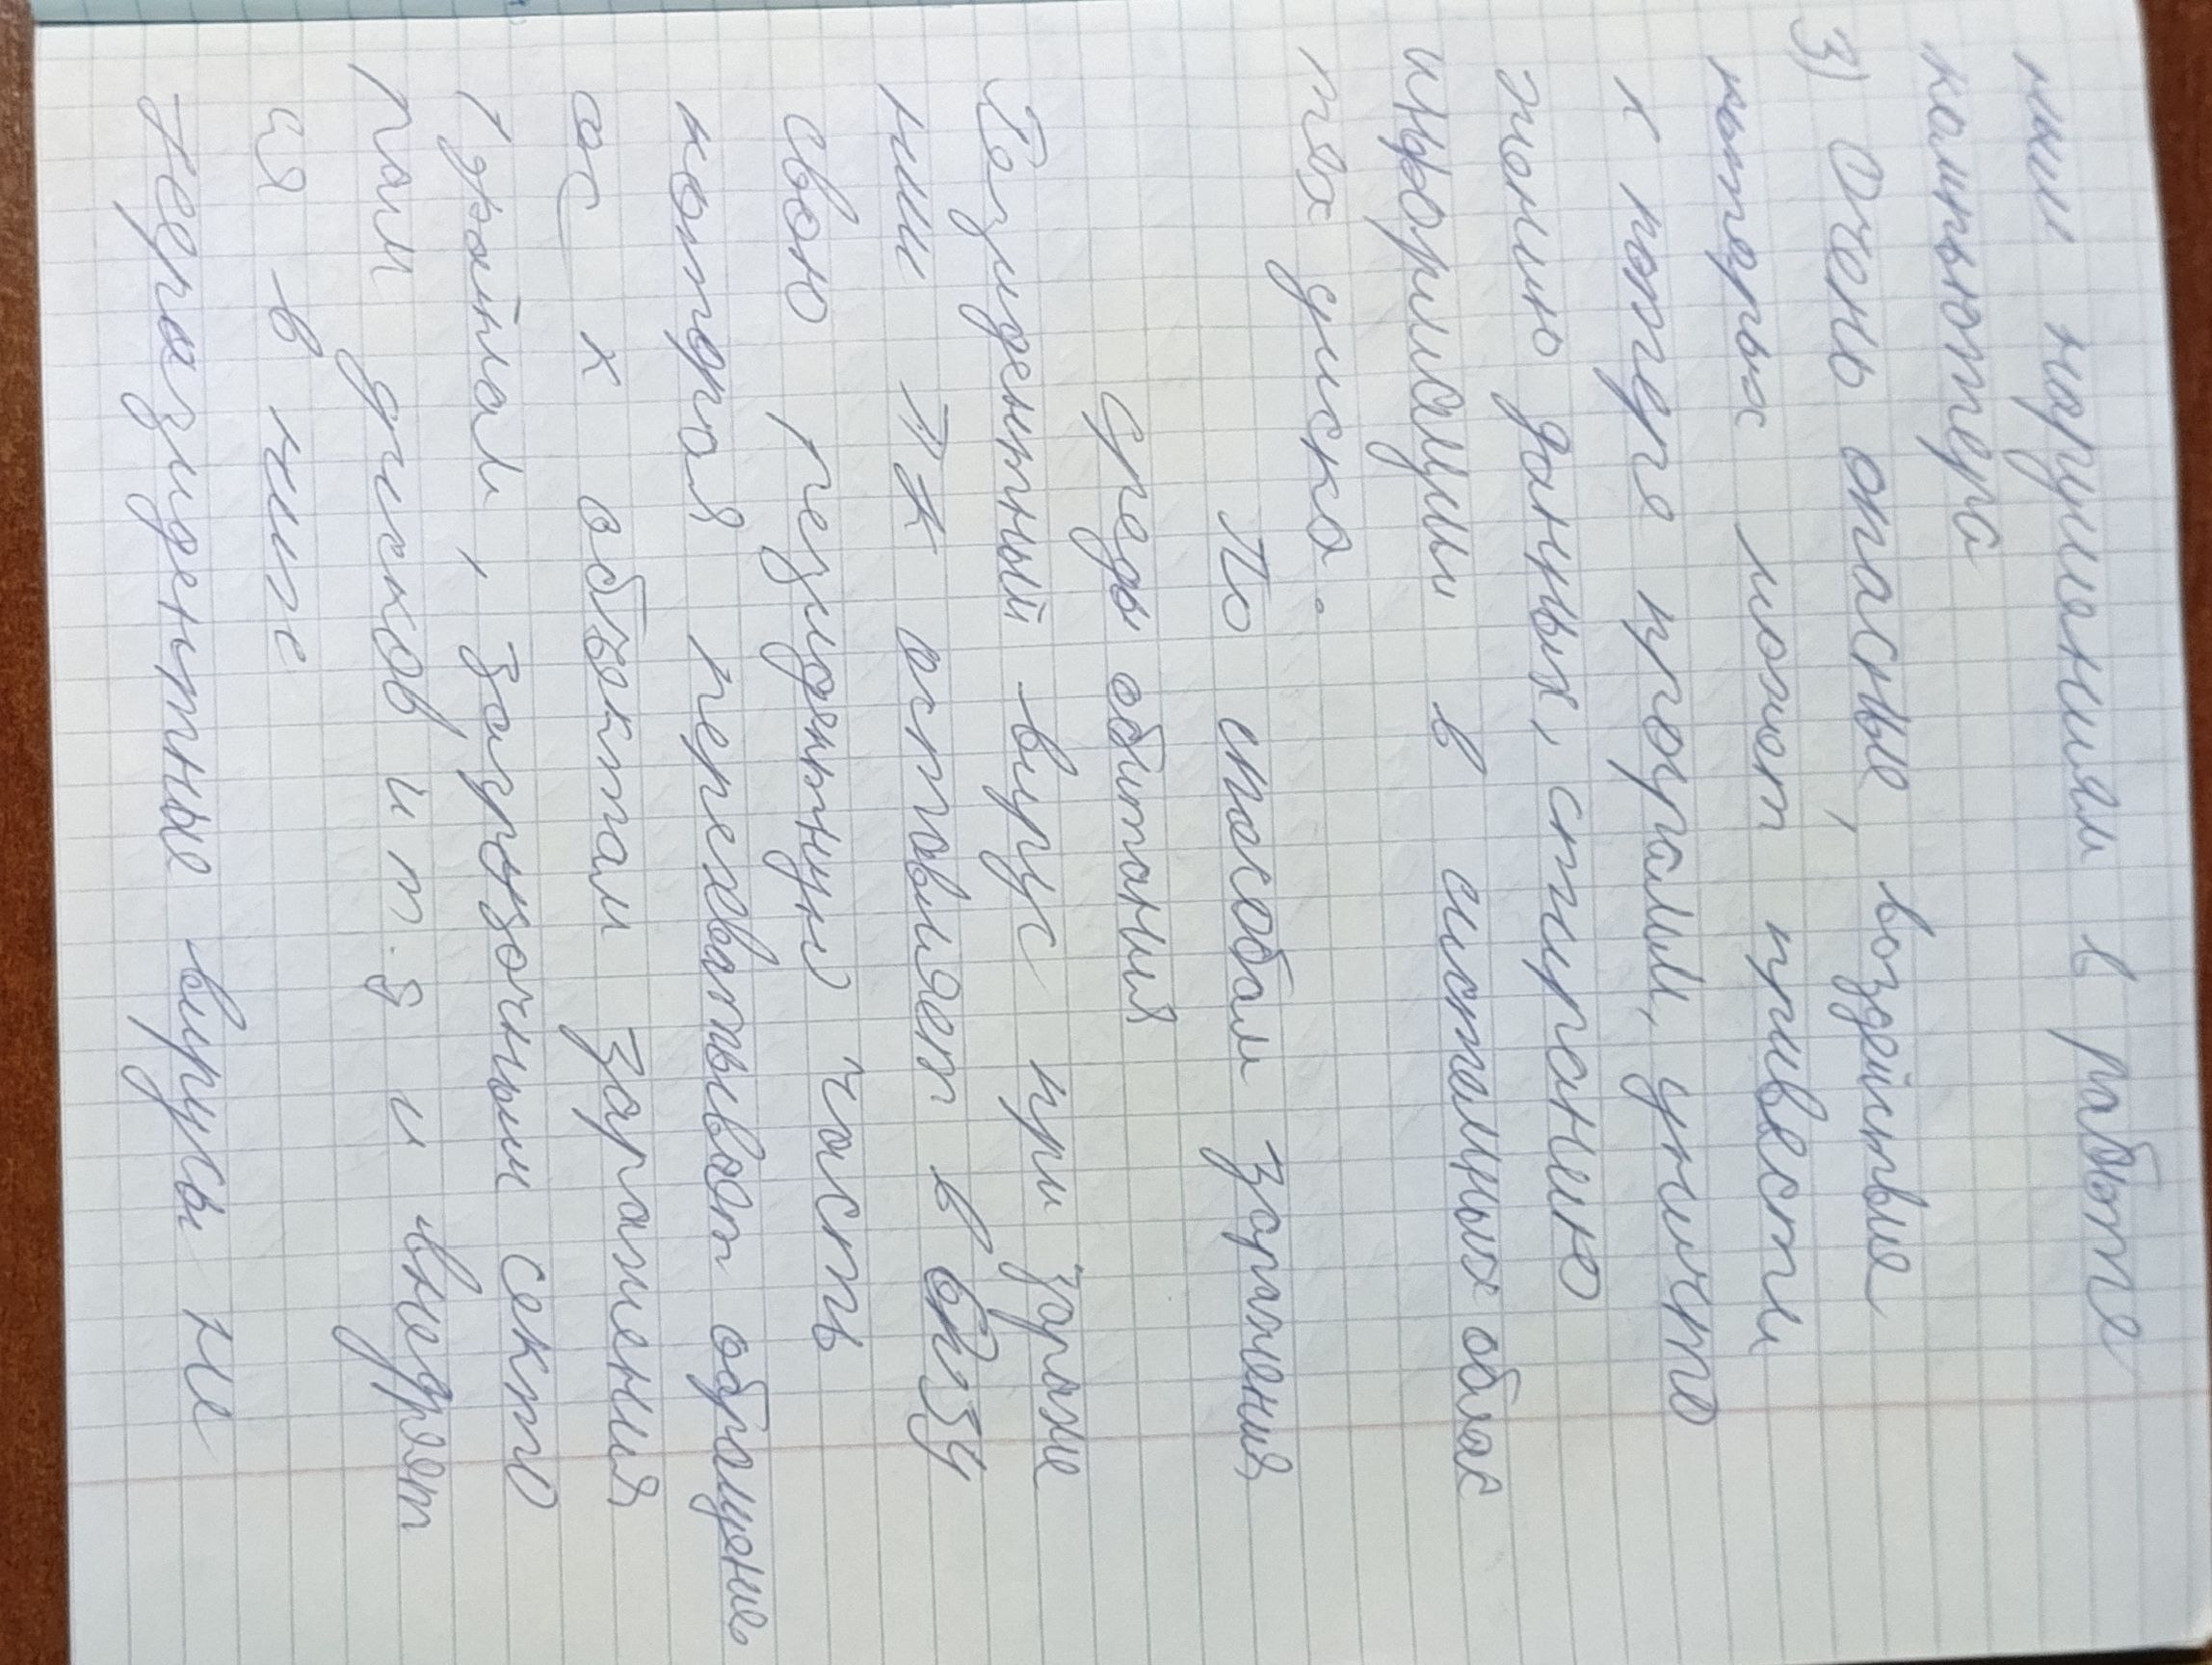 ным нарушениям в работе
компьютера
3) Очень опасные, воздействие
которых может привести
к потере программ, уничто
жению данных, стиранию
информации в системных облас
тях диска.
По способам заражения
среды обитания
Резидентный вирус при зараже
нии ПК оставляет в ОЗУ
свою резидентную часть
которая перехватывает обращение
ос к объектам заражения
(файлам, загрузочным секто
рам дисков и т.д и внедряет
ся в них
Нерезидентные вирусы не